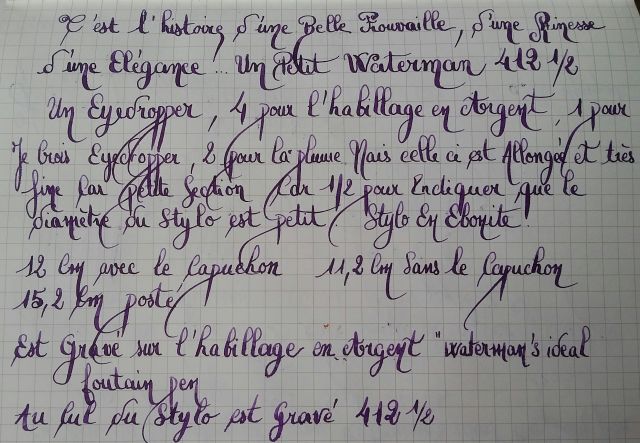 C'est l'histoire d'une Belle Trouvaille, d'une Finesse
d'une Elégance !... Un Petit Waterman 412 1/2
Un Eyedropper, 4 pour l'habillage en Argent, 1 pour
Je crois Eyedropper, 2 pour la plume Mais celle ci est Allongée et très
fine car petite Section Car 1/2 pour Indiquer que le
diamètre du Stylo est petit. Stylo En Ebonite.
12 Cm avec le Capuchon 11,2 Cm Sans le Capuchon
15,2 Cm posté
Est Gravé sur l'habillage en Argent "Waterman's ideal
foutain pen
Au Cul du Stylo est Gravé 412 1/2